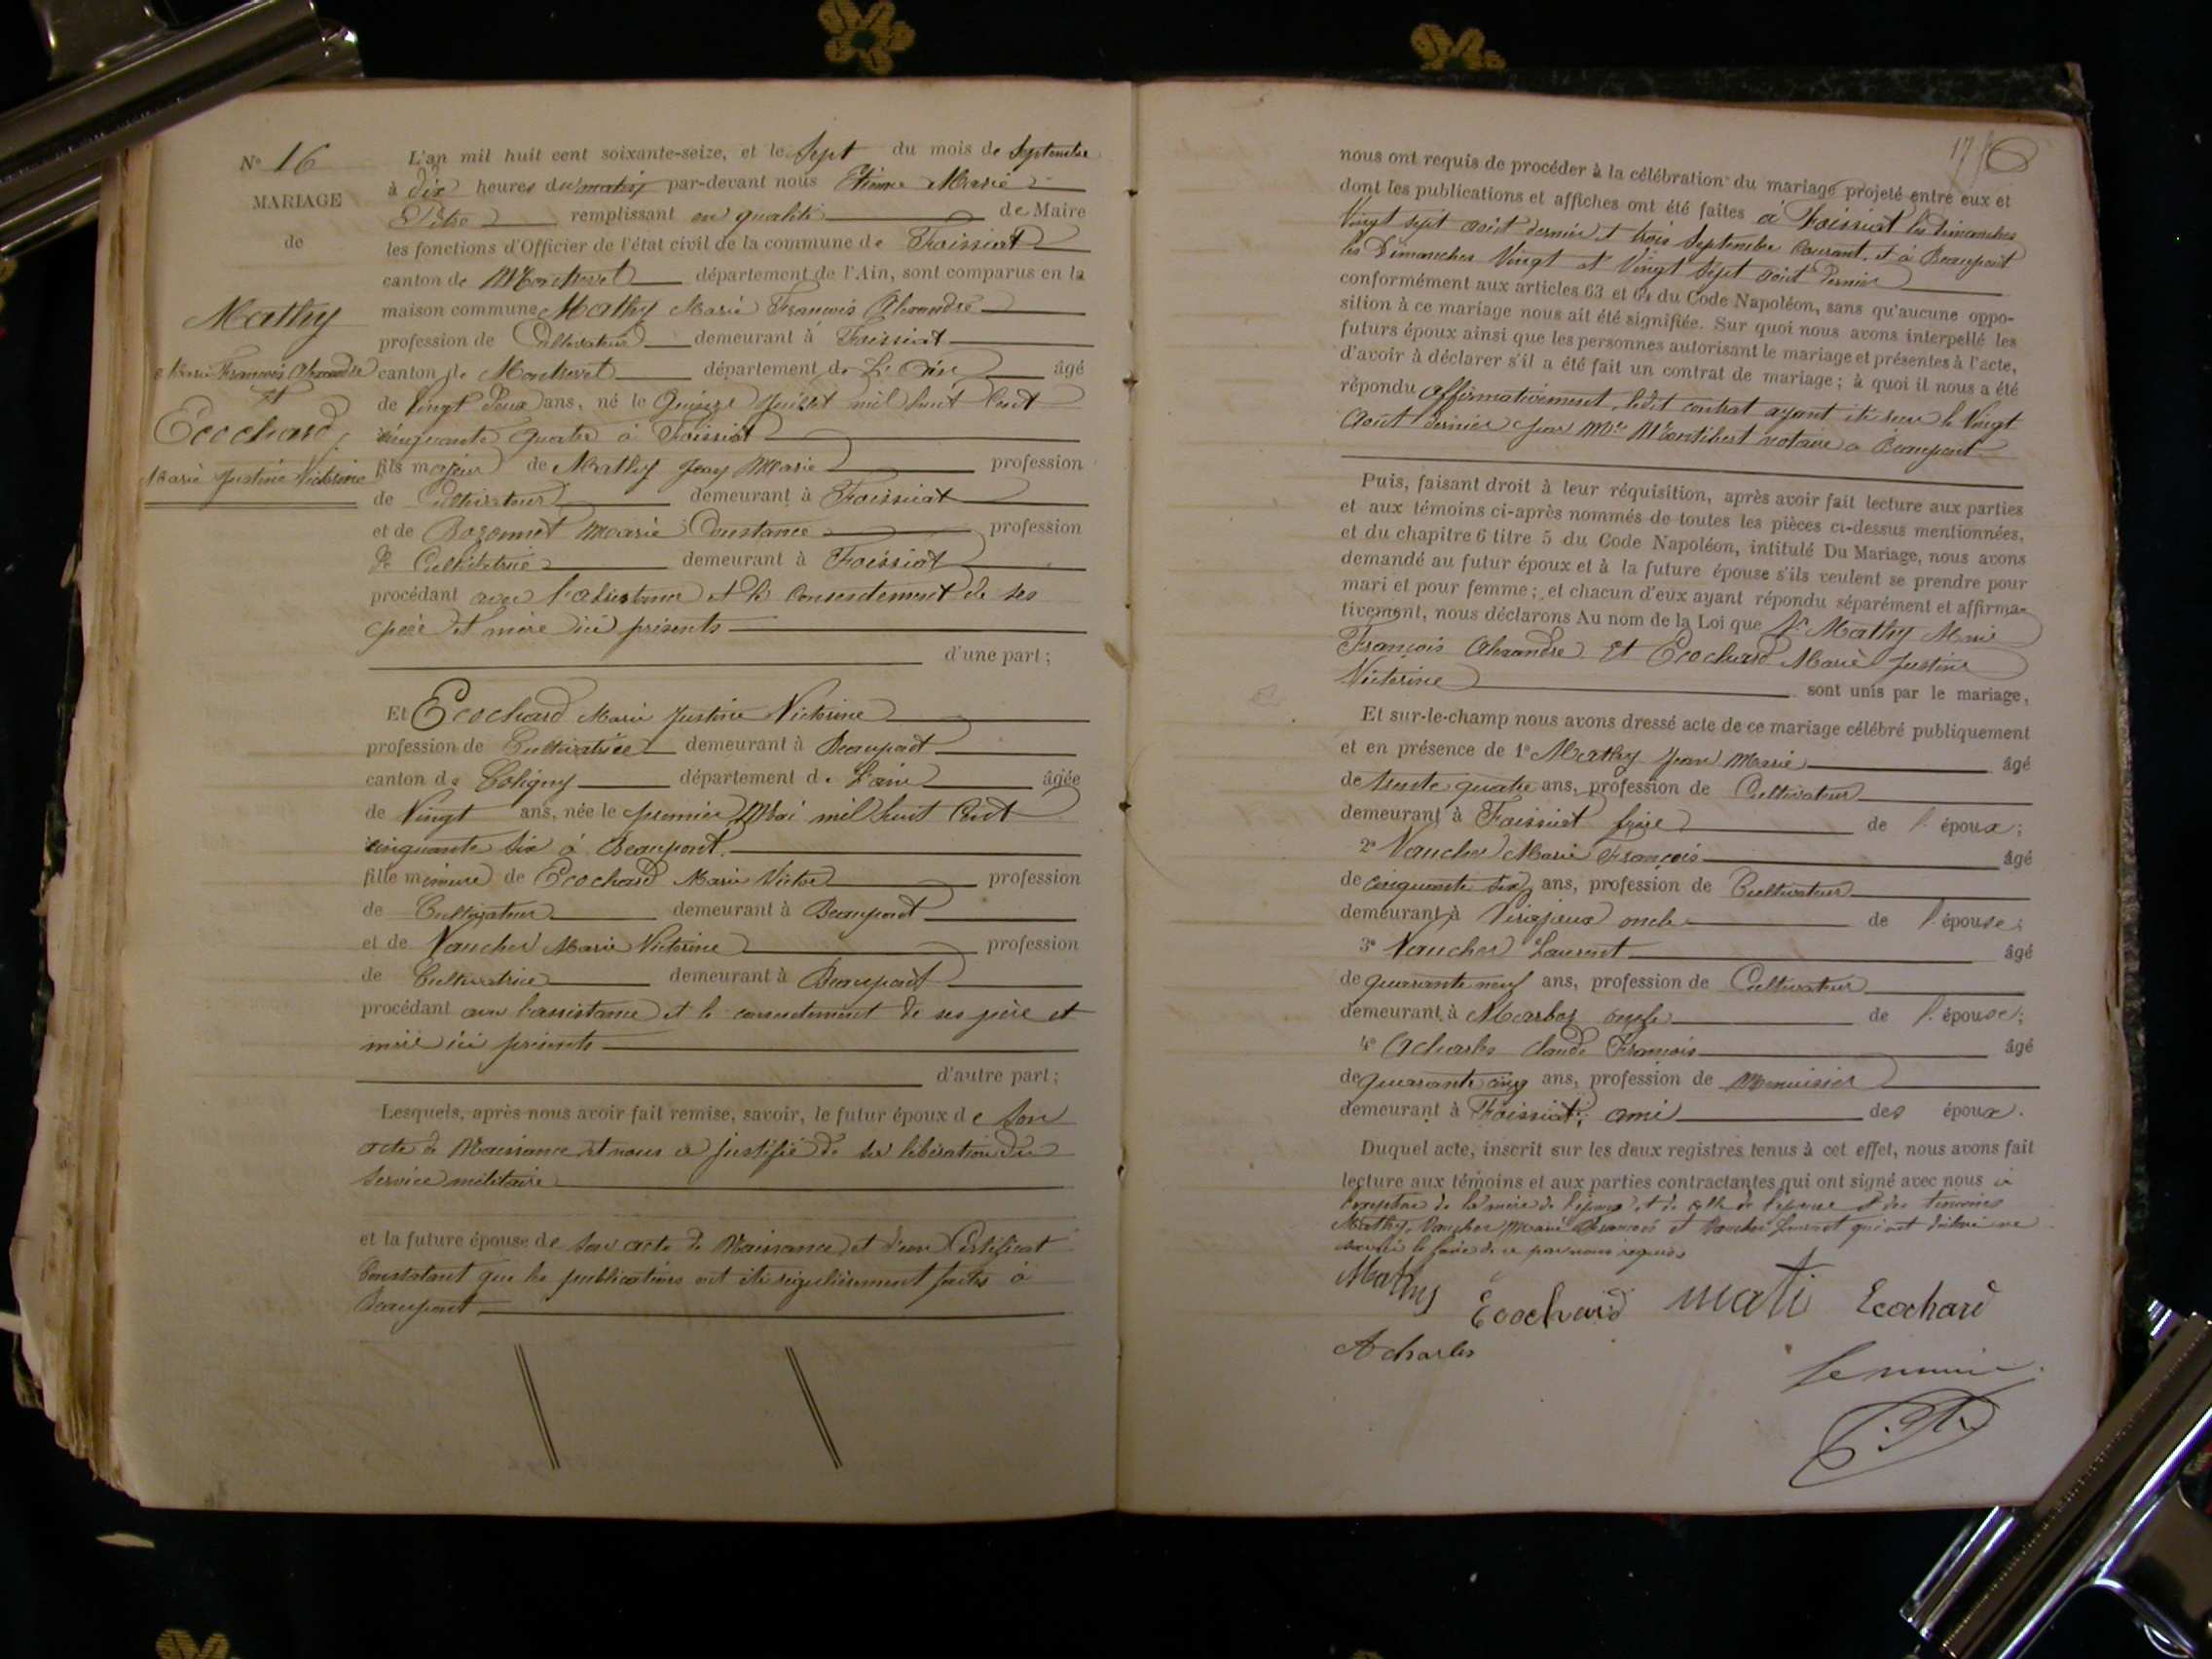 N° 16
MARIAGE
de
Mathy
Marie François Alexandre
et
Ecochard
Marie Justine Victorine
L'an mil huit cent soixante-seize, et le Sept du mois de Septembre
à dix heures du matin par-devant nous Etienne Marie
Pitre remplissant en qualité de Maire
les fonctions d'Officier de l'état civil de la commune de Foissiat
canton de Montrevel département de l'Ain, sont comparus en la
maison commune Mathy Marie François Alexandre
profession de Cultivateur demeurant à Foissiat
canton de Montrevel département de L'Ain âgé
de Vingt Deux ans, né le Quinze Juillet mil huit Cent
cinquante quatre à Foissiat
fils majeur de Mathy Jean Marie profession
de Cultivateur demeurant à Foissiat
et de Bozonnet Marie Constance profession
de Cultivatrice demeurant à Foissiat
procédant avec l'assistance et le Consentement de ses
père et mère ici présents
d'une part;
Et Ecochard Marie Justine Victorine
profession de Cultivatrice demeurant à Beaupont
canton de Coligny département de L'ain âgée
de Vingt ans, née le premier Mai mil huit Cent
cinquante six à Beaupont.
fille mineure de Ecochard Marie Victor profession
de Cultivateur demeurant à Beaupont
et de Vaucher Marie Victorine profession
de Cultivatrice demeurant à Beaupont
procédant avec l'assistance et le consentement de ses père et
mère ici présents
d'autre part;
Lesquels, après nous avoir fait remise, savoir, le futur époux de Son
acte de Naissance et nous a justifié de sa libération du
Service militaire
et la future épouse de son acte de Naissance et d'un Certificat
Constatant que les publications ont été régulièrement faites à
Beaupont
17
nous ont requis de procéder à la célébration du mariage projeté entre eux et
dont les publications et affiches ont été faites à Foissiat les Dimanches
Vingt sept août dernier et trois Septembre Courant, et à Beaupont
les Dimanches Vingt et Vingt Sept août Dernier
conformément aux articles 63 et 64 du Code Napoléon, sans qu'aucune oppo-
sition à ce mariage nous ait été signifiée. Sur quoi nous avons interpellé les
futurs époux ainsi que les personnes autorisant le mariage et présentes à l'acte,
d'avoir à déclarer s'il a été fait un contrat de mariage; à quoi il nous a été
répondu affirmativement, ledit contrat ayant été reçu le Vingt
Août dernier par Me Montibert notaire à Beaupont
Puis, faisant droit à leur réquisition, après avoir fait lecture aux parties
et aux témoins ci-après nommés de toutes les pièces ci-dessus mentionnées,
et du chapitre 6 titre 5 du Code Napoléon, intitulé Du Mariage, nous avons
demandé au futur époux et à la future épouse s'ils veulent se prendre pour
mari et pour femme; et chacun d'eux ayant répondu séparément et affirma-
tivement, nous déclarons Au nom de la Loi que Sr Mathy Marie
François Alexandre Et Ecochard Marie Justine
Victorine sont unis par le mariage,
Et sur-le-champ nous avons dressé acte de ce mariage célébré publiquement
et en présence de 1° Mathy Jean Marie âgé
de trente quatre ans, profession de Cultivateur
demeurant à Foissiat frère de l'époux;
2° Vaucher Marie François âgé
de cinquante six ans, profession de Cultivateur
demeurant à oncle de l'épouse;
3° Vaucher Laurent âgé
de quarante neuf ans, profession de Cultivateur
demeurant à Marboz oncle de l'épouse;
4° Acharles Claude François âgé
de quarante cinq ans, profession de Menuisier
demeurant à Foissiat; ami des époux.
Duquel acte, inscrit sur les deux registres tenus à cet effet, nous avons fait
lecture aux témoins et aux parties contractantes qui ont signé avec nous à
l'exception de la mère de l'époux et de celle de l'épouse et des témoins
Mathy, Vaucher Marie François et Vaucher Laurent qui ont déclaré ne
savoir le faire de ce par nous requis
Mathy Ecochard Mati Ecochard
Acharles